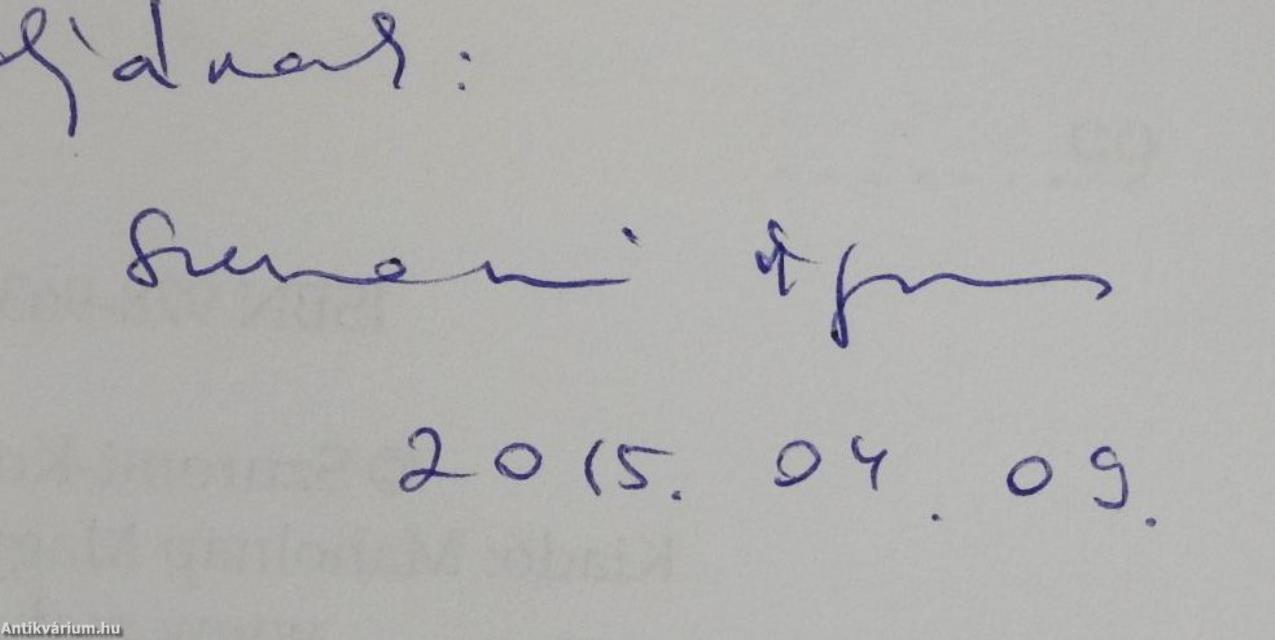 jának:
Szuromi Ágnes
2015. 04. 09.
Antikvárium.hu